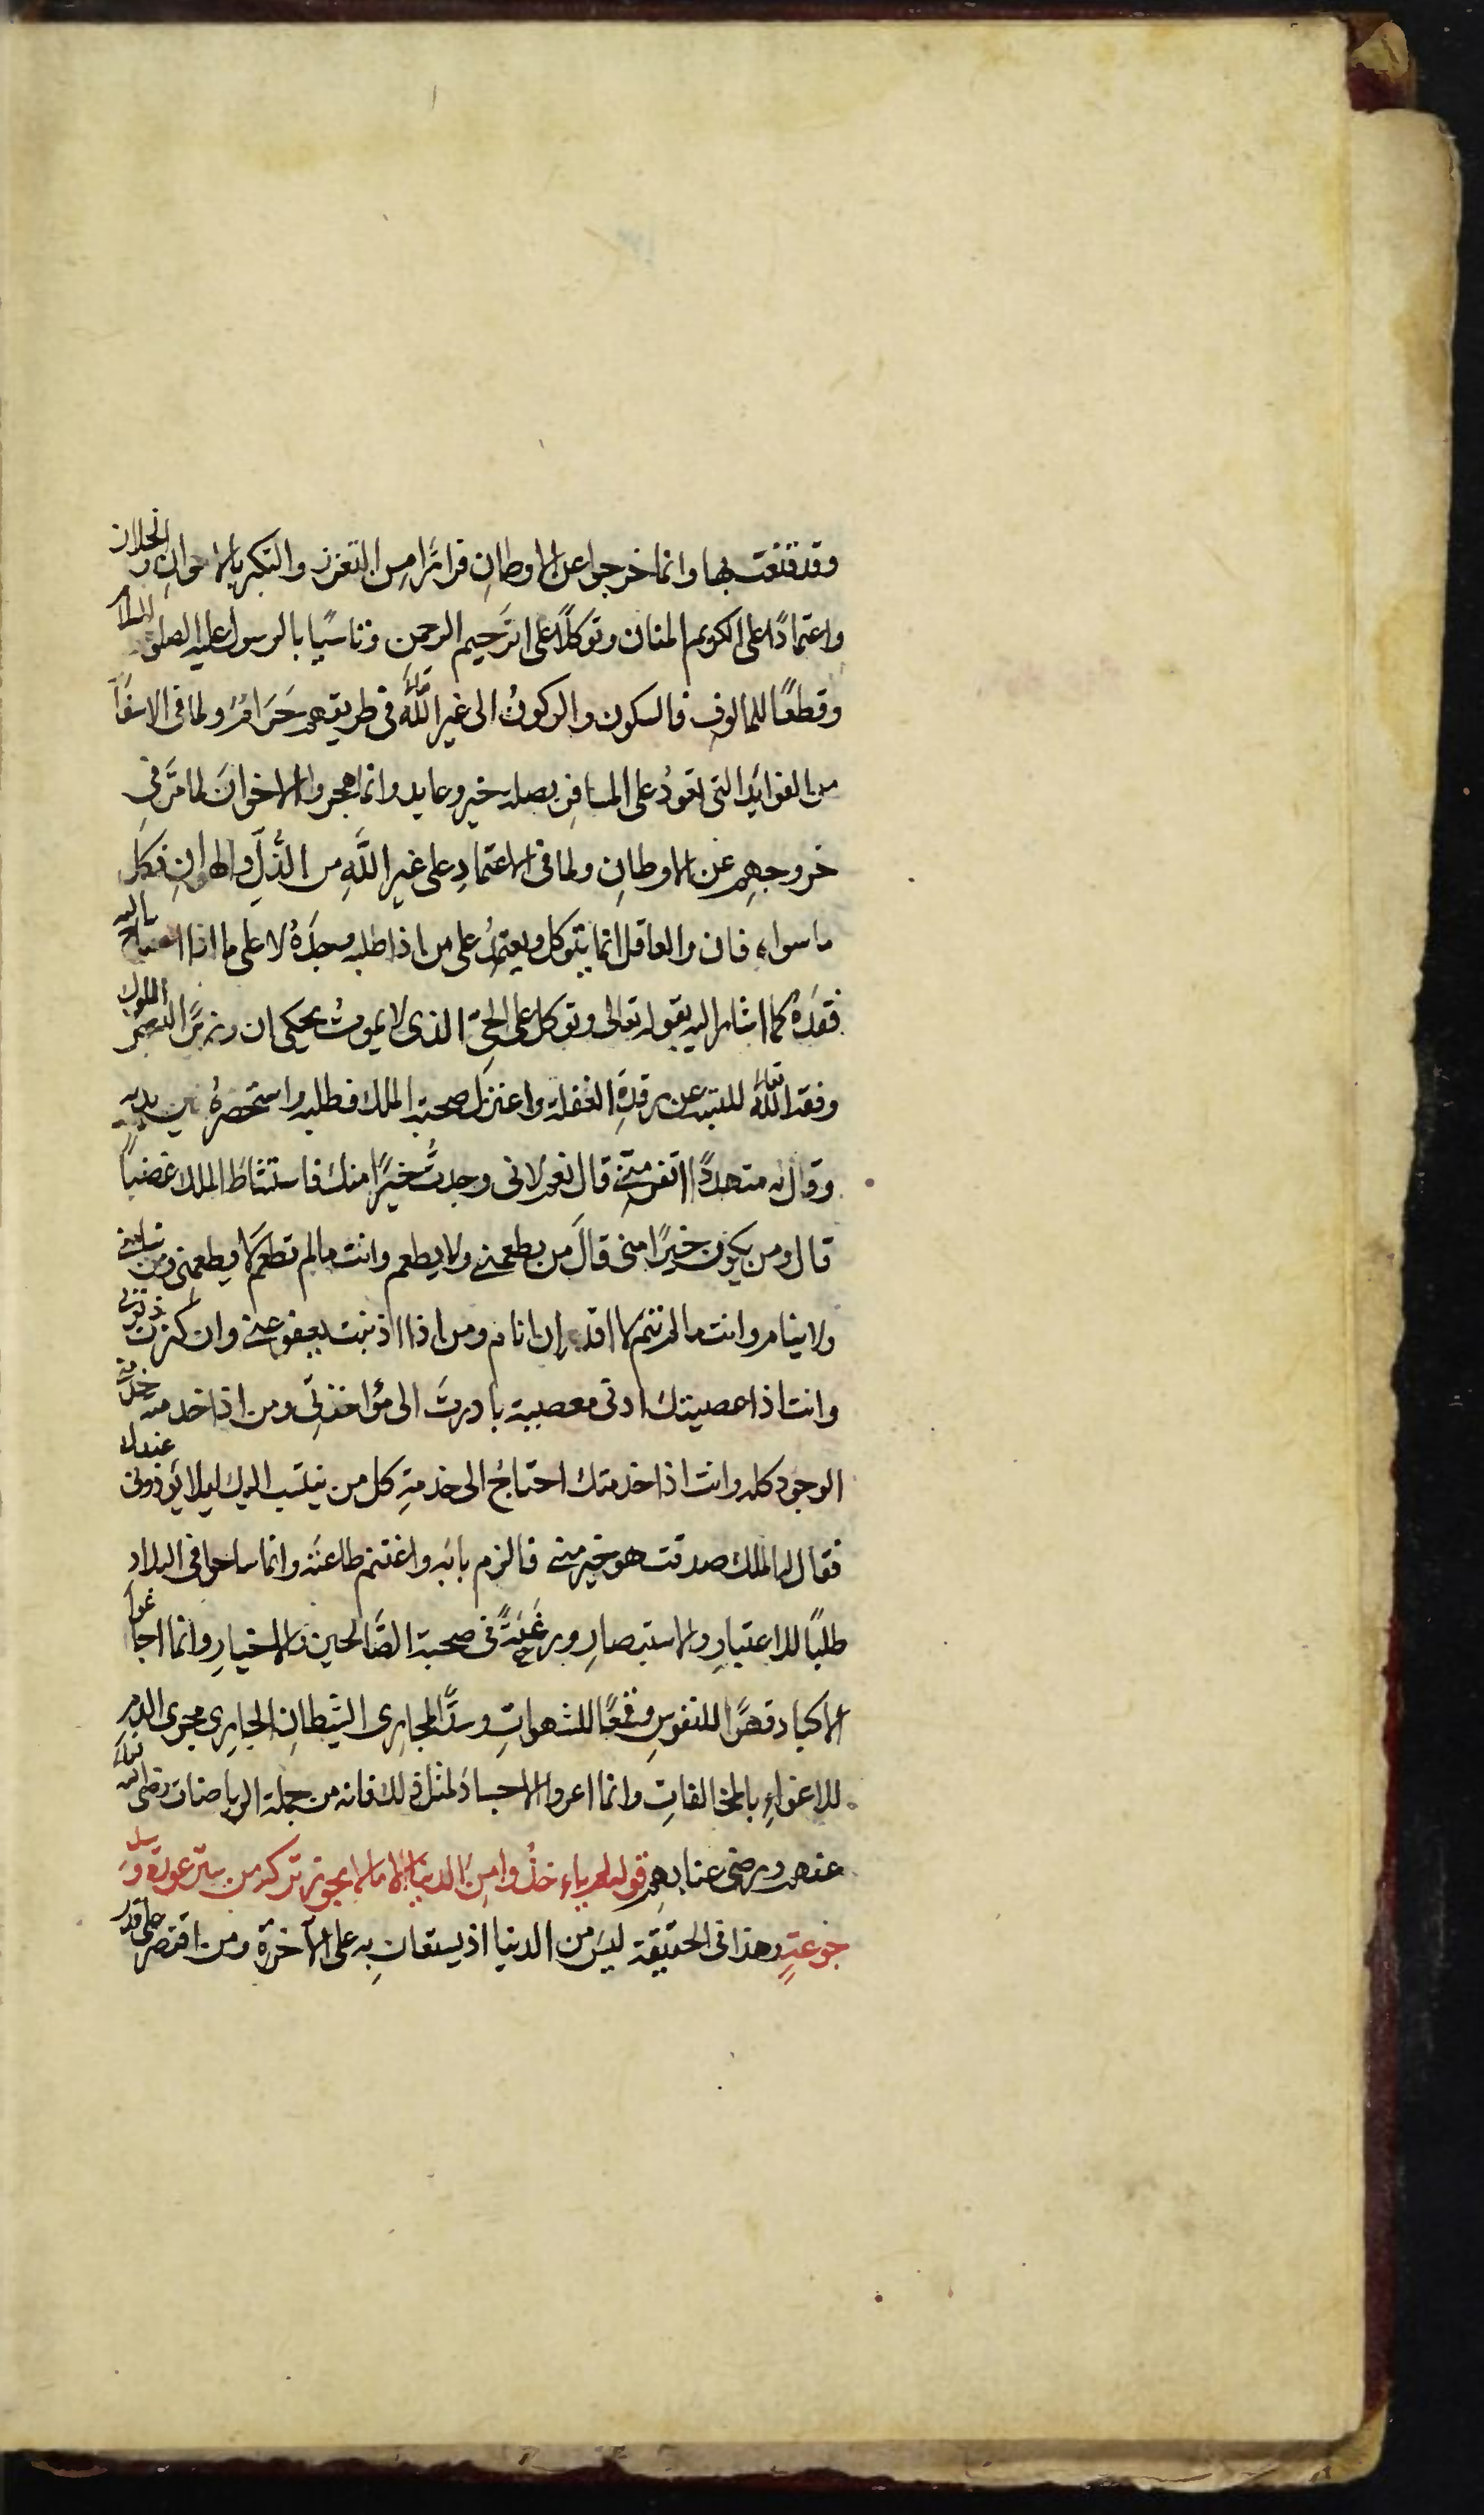 وقد قنعت بها وانما خرجوا عن الاوطان فرارًا من التعزز والتكبر بالاخوان والخلان
واعتمادًا على الكريم المنان وتوكلًا على الرحيم الرحمن وتاسيًا بالرسول عليه الصلوة والسلام
وقطعًا للمالوف فالسكون والركونُ الى غير الله تعالى في طريقهم حَرَامٌ ولما في الاسفار
من الفوايد التي تعودُ على المسافر بصلة خير وعايد وانما هجروا الاخوانَ لما مَّر في
خروجهِم عن الاوطانِ ولما في الاعتمادِ على غير اللَّهِ من الذُّلِّ والهوانِ فكل
ما سواه فان والعاقل انما يتوكل ويعتمدُ على من اذا طلبه وجدَهُ لا على ما اذا احتاج اليه
فقدَهُ كما اشار اليه بقوله تعالى وتوكل على الحيّ الذي لا يموتُ يحكى ان وزيرًا لبعض الملوك
وفقه الله تعالى للتنبه عن رقدةِ الغفلة واعتزل صحبة الملك فطلبه واستحضرهُ بين يديه
وقال له متهددًا اتفر مني قال نعم لاني وجدتُ خيرًا منك فاستشاط الملك غضبًا
قال ومن يكون خيرًا مني قالَ من يطعمني ولا يطعم وانت ما لم تطعم لا يطعمني ومن
ولا ينام وانت ما لم تنم لا اقدر ان انام ومن اذا اذنبت يعفو عني وان كثرت ذنوبي
وانت اذا عصيتك ادنى معصية بادرتَ الى مؤاخذتي ومن اذا خدمته خدمه
الوجود كله وانت اذا خدمتك احتاجُ الى خدمةِ كل من ينتسب اليك ليلا يوذوني عندك
فقال له الملك صدقت هو خير مني فالزم بابَه واغتنم طاعتَه وانما ساحوا في البلاد
طلبًا للاعتبارِ والاستبصارِ ورغبةً في صحبة الصَّالحين والاخيارِ وانما اجاعوا
الاكباد قهرًا للنفوسِ وقمعًا للشهواتِ وسدًّا لمجارى الشيطانِ الجارِى مجرى الدمِ
للاغواءِ بالمخالفاتِ وانما اعروا الاجسادَ لمثل ذلك فانه من جملة الرياضات رضى الله تعالى
عنهم ورضى عنا بهم قوله الغرباء خذُوا من الدنيا ما لا يجوز تركه من ستر عورة وسد
جوعةٍ وهذا في الحقيقة ليسَ من الدنيا اذ يستعانِ به على الآخرة ومن اقتصر على قدر